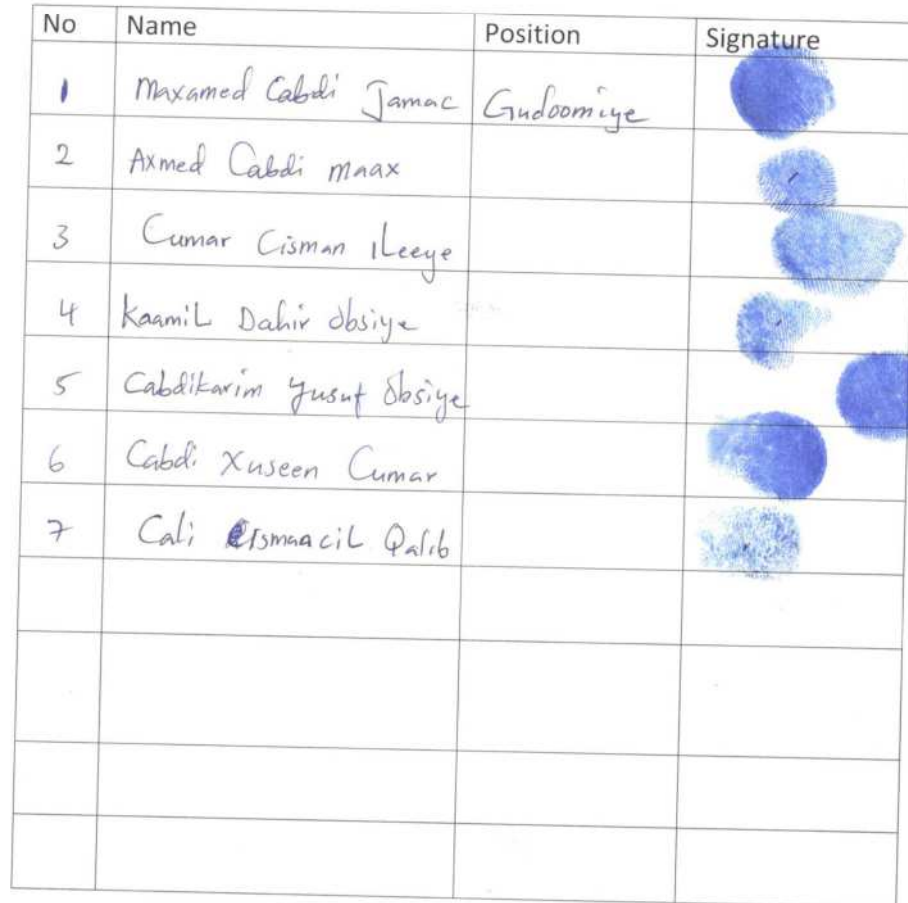 No Name Position Signature
1 Maxamed Cabdi Jamac Gudoomiye
2 Axmed Cabdi maax
3 Cumar Cisman iLeeye
4 KaamiL Dahir obsiye
5 Cabdikarim Yusuf obsiye
6 Cabdi Xuseen Cumar
7 Cali ismaaciL Qalib